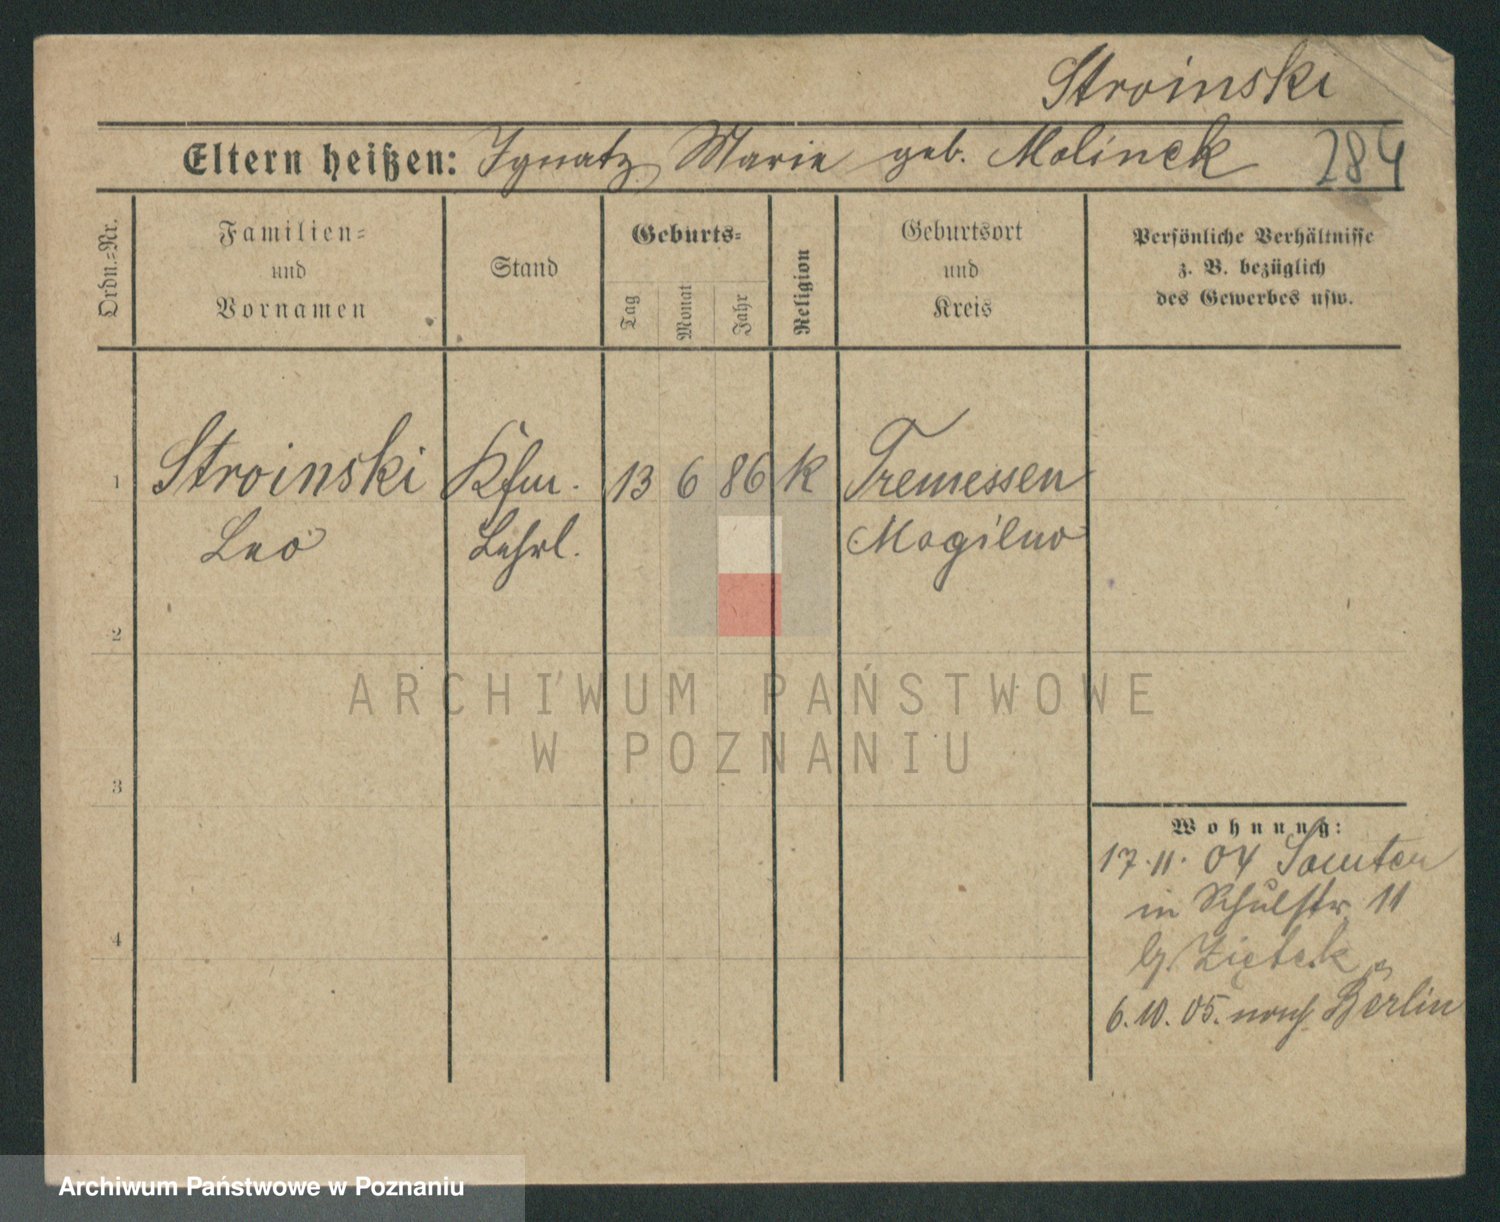 Stroinski
Eltern heißen: Ignatz Marie geb. Molinek
284
Ordn.=Nr.
Familien=
und
Vornamen
Stand
Geburts=
Tag
Monat
Jahr
Religion
Geburtsort
und
Kreis
Persönliche Verhältnisse
z. B. bezüglich
des Gewerbes usw.
1 Stroinski Kfm. 13 6 86 k Tremessen
Leo Lehrl. Mogilno
2
ARCHIWUM PAŃSTWOWE
W POZNANIU
3
Wohnung:
17.11.04 Samter
in Schulstr. 11
b/ Ziętek
4
6.10.05. nach Berlin
Archiwum Państwowe w Poznaniu